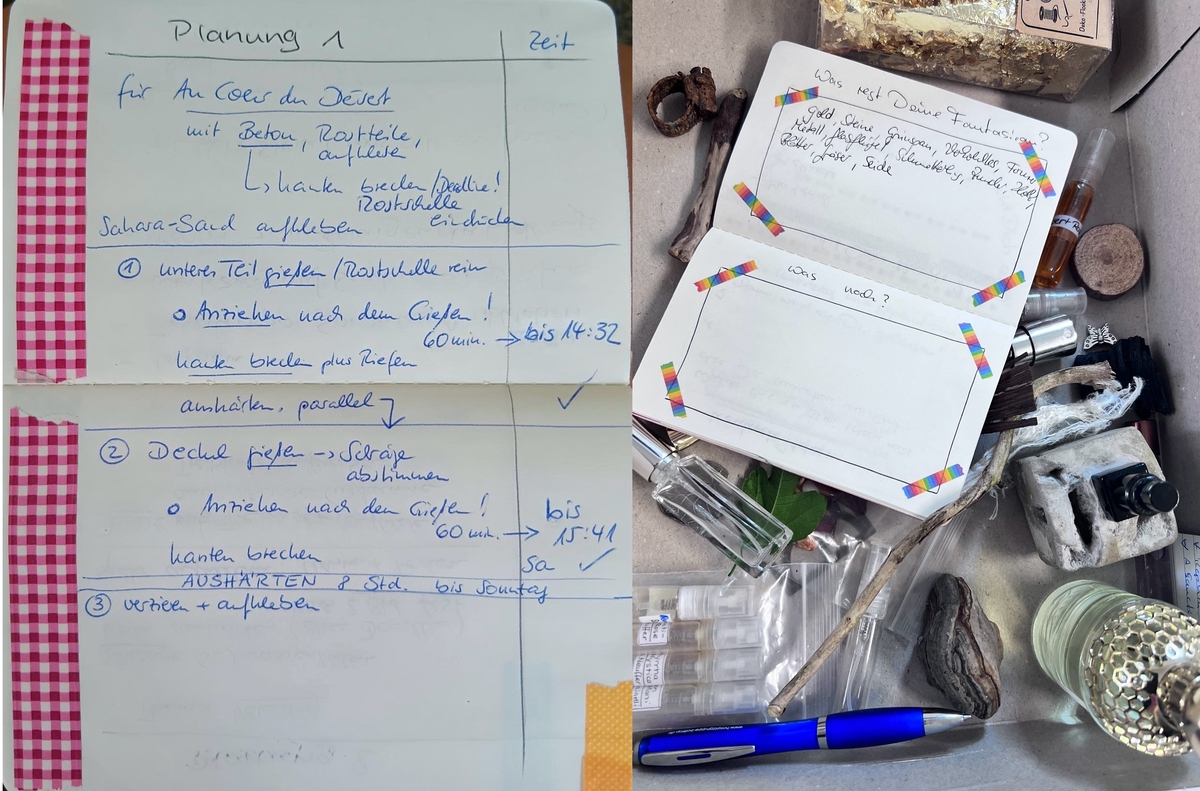 Planung 1
Zeit
für Au Coeur du Désert
mit Beton, Rostteile,
aufkleben
↳ kanten brechen/Deadline!
Rostschelle
eindrücken
Sahara-Sand aufkleben
① unterer Teil gießen / Rostschelle rein
o Anziehen nach dem Gießen!
60 min. → bis 14:32
kanten brechen plus Riefen
aushärten, parallel ✓
② Deckel gießen → Schräge
abstimmen
o Anziehen nach dem Gießen!
60 min. → bis
15:41
kanten brechen
Sa ✓
AUSHÄRTEN 8 Std. bis Sonntag
③ verzieren + aufkleben
Was regt Deine Fantasie an?
Gold, Steine, Formen
Metall, Schmetterling, Holz,
Blätter, Gräser, Seide
Was noch?